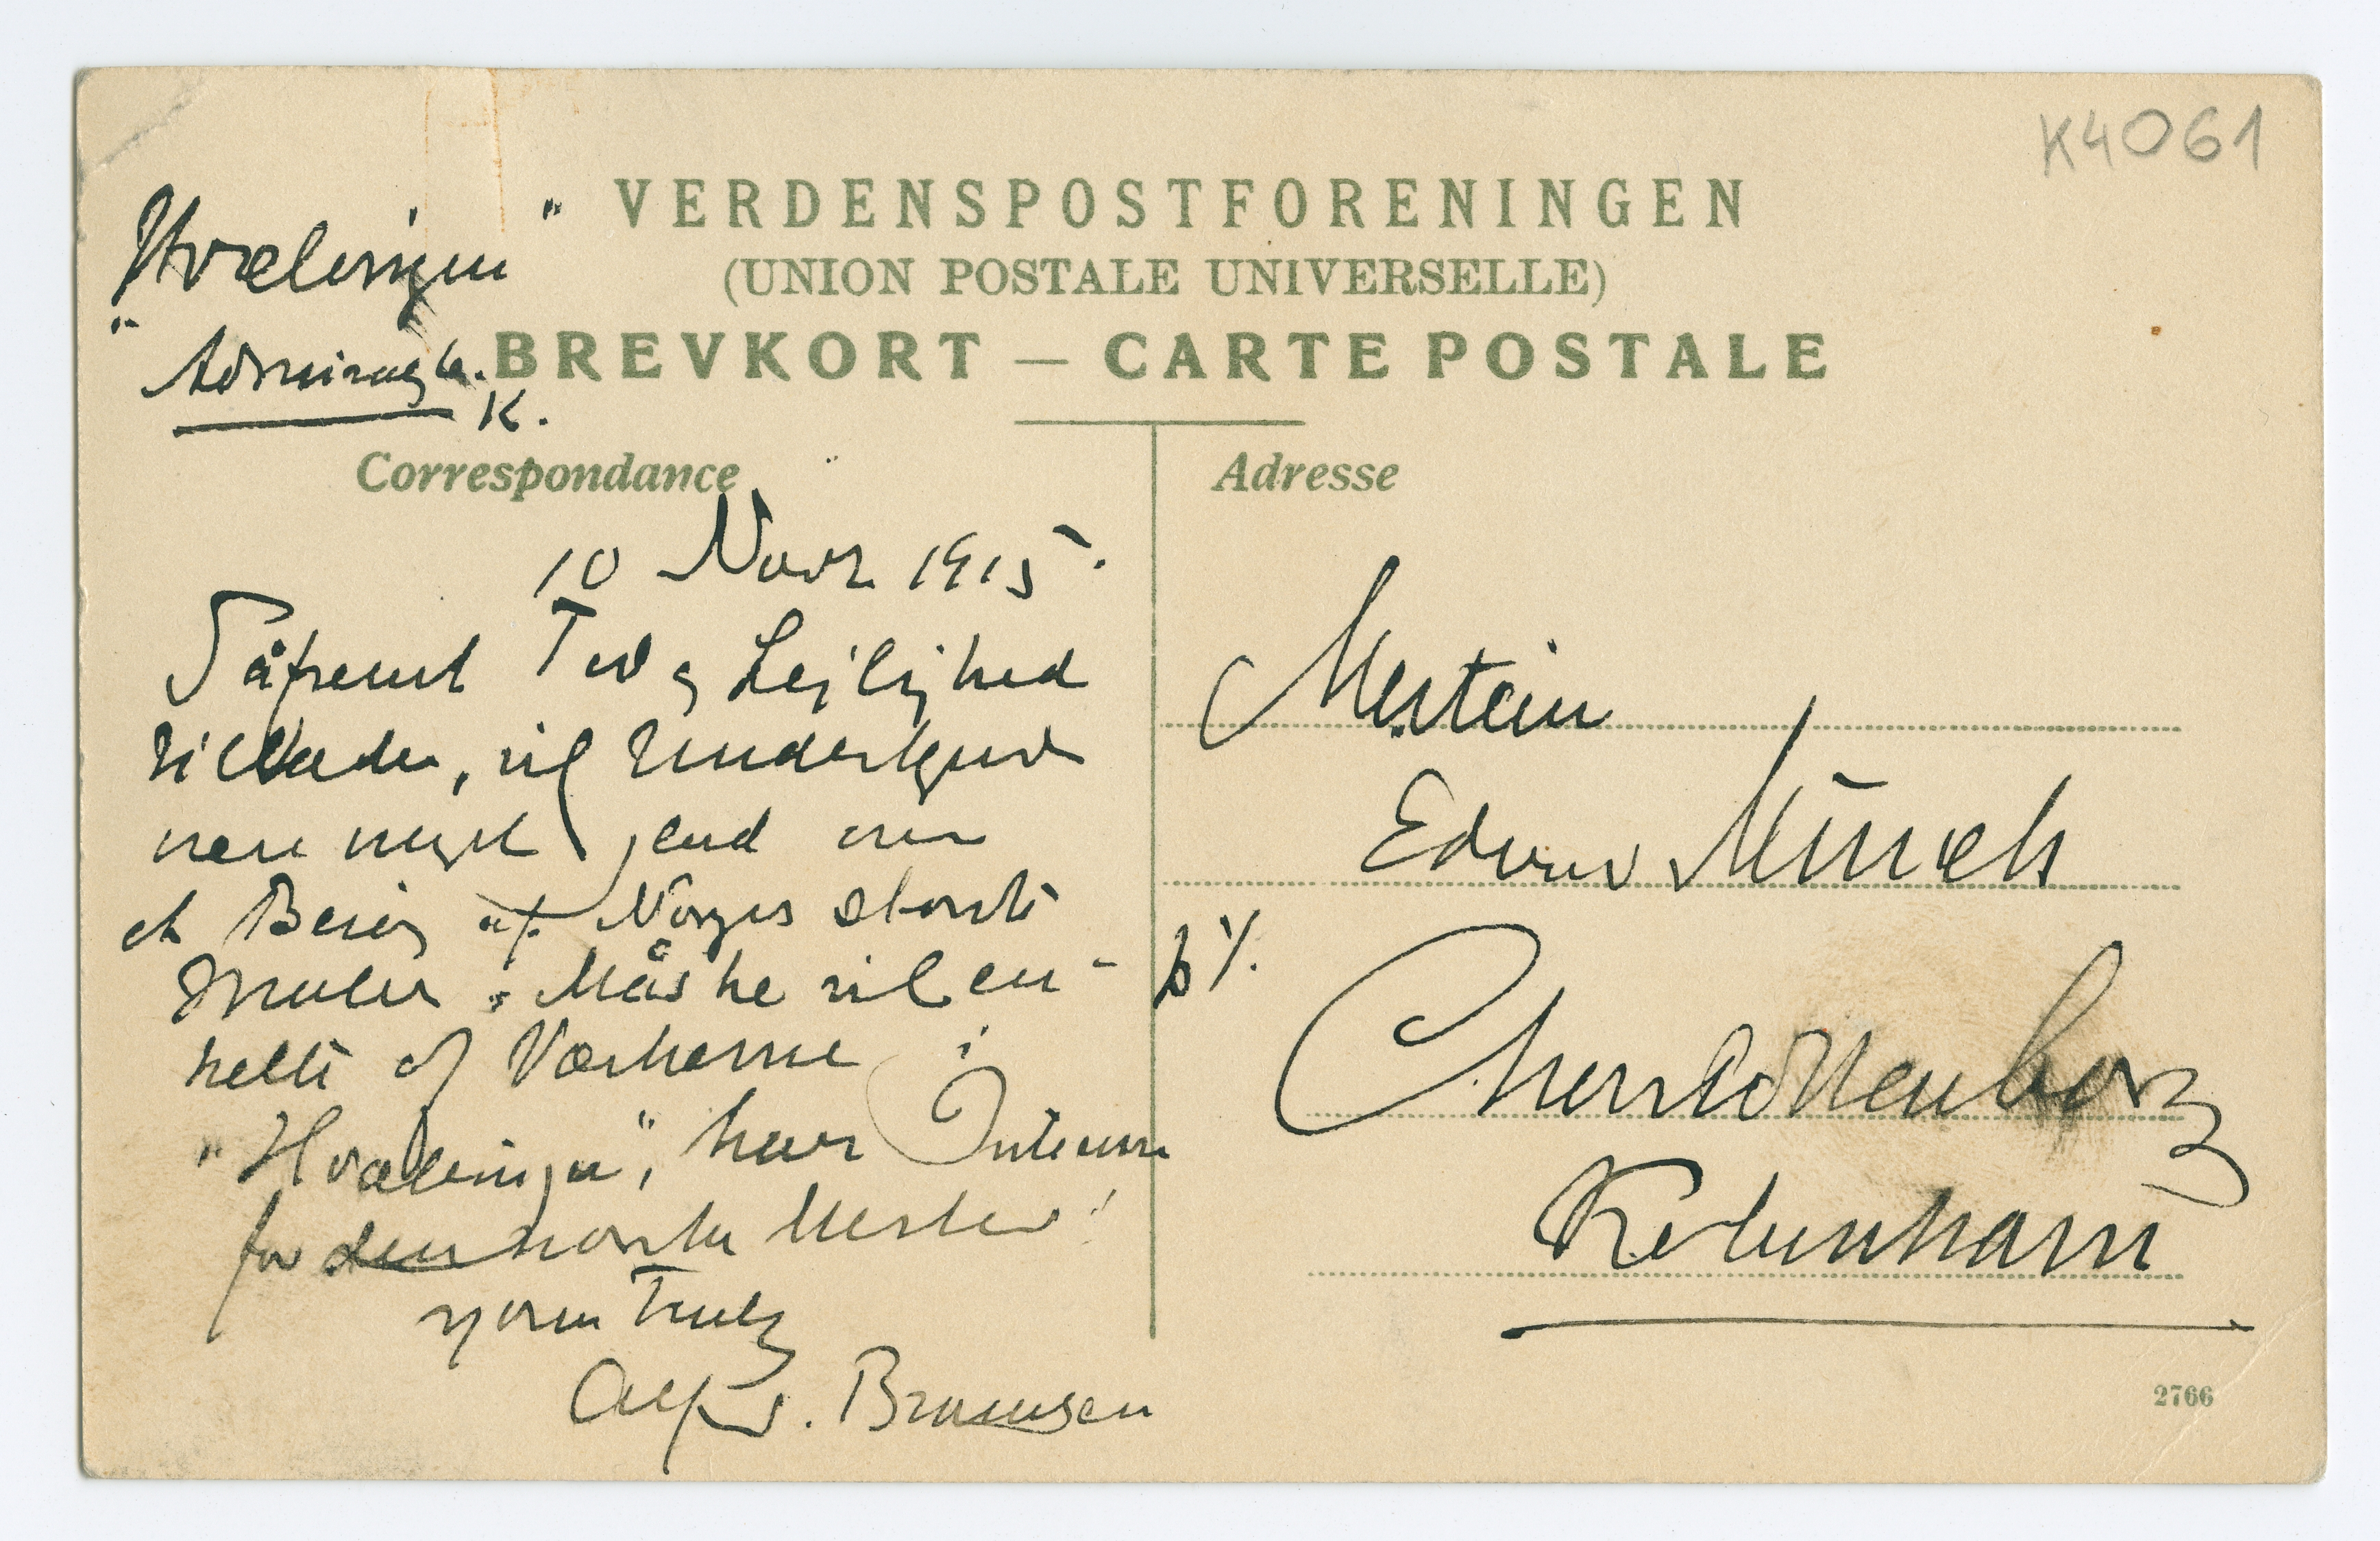 K4061
"Hvælvingen"
Admiralg 6.
K.
VERDENSPOSTFORENINGEN
(UNION POSTALE UNIVERSELLE)
BREVKORT — CARTE POSTALE
Correspondance
10 Novr 1915.
Såfremt Tid og Lejlighed
tillader, vil Undertegnede
være meget glad over
et Besøg af Norges største
Maler. Måske vil en-
kelte af Værkerne i
"Hvælvingen", have Interesse
for den norske Mester!
yours Truly
Alfred. Bramsen
Adresse
Mesteren
Edvard Münch
p. t.
Charlottenborg
København
2766